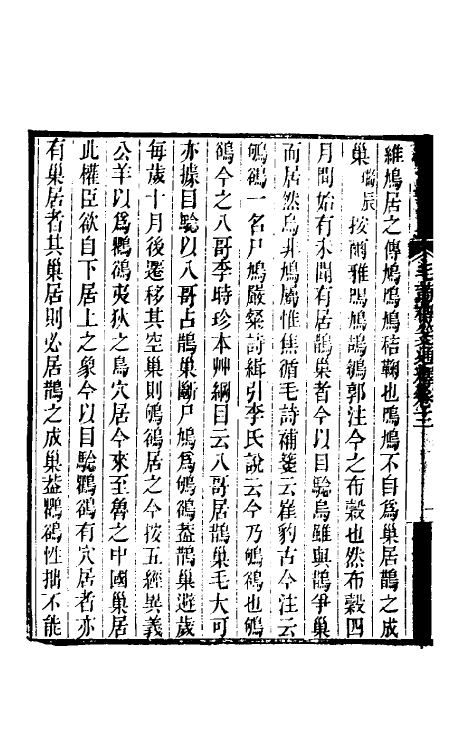 維鳩居之傳鳩鳲鳩秸鞠也鳲鳩不自爲巢居鵲之成
巢瑞辰按爾雅鳲鳩鴶鵴郭注今之布穀也然布穀四
月間始有不聞有居鵲巢者今以目驗烏雖與鵲爭巢
而居然烏非鳩屬惟焦循毛詩補疏云崔豹古今注云
鴝鵒一名尸鳩嚴粲詩緝引李氏說云今乃鴝鵒也鴝
鵒今之八哥李時珍本艸綱目云八哥居鵲巢毛大可
亦據目驗以八哥占鵲巢斷尸鳩爲鴝鵒葢鵲巢避歲
每歲十月後遷移其空巢則鴝鵒居之今按五經異義
公羊以爲鸜鵒夷狄之鳥穴居今來至魯之中國巢居
此權臣欲自下居上之象今以目驗鸜鵒有穴居者亦
有巢居者其巢居則必居鵲之成巢葢鸜鵒性拙不能